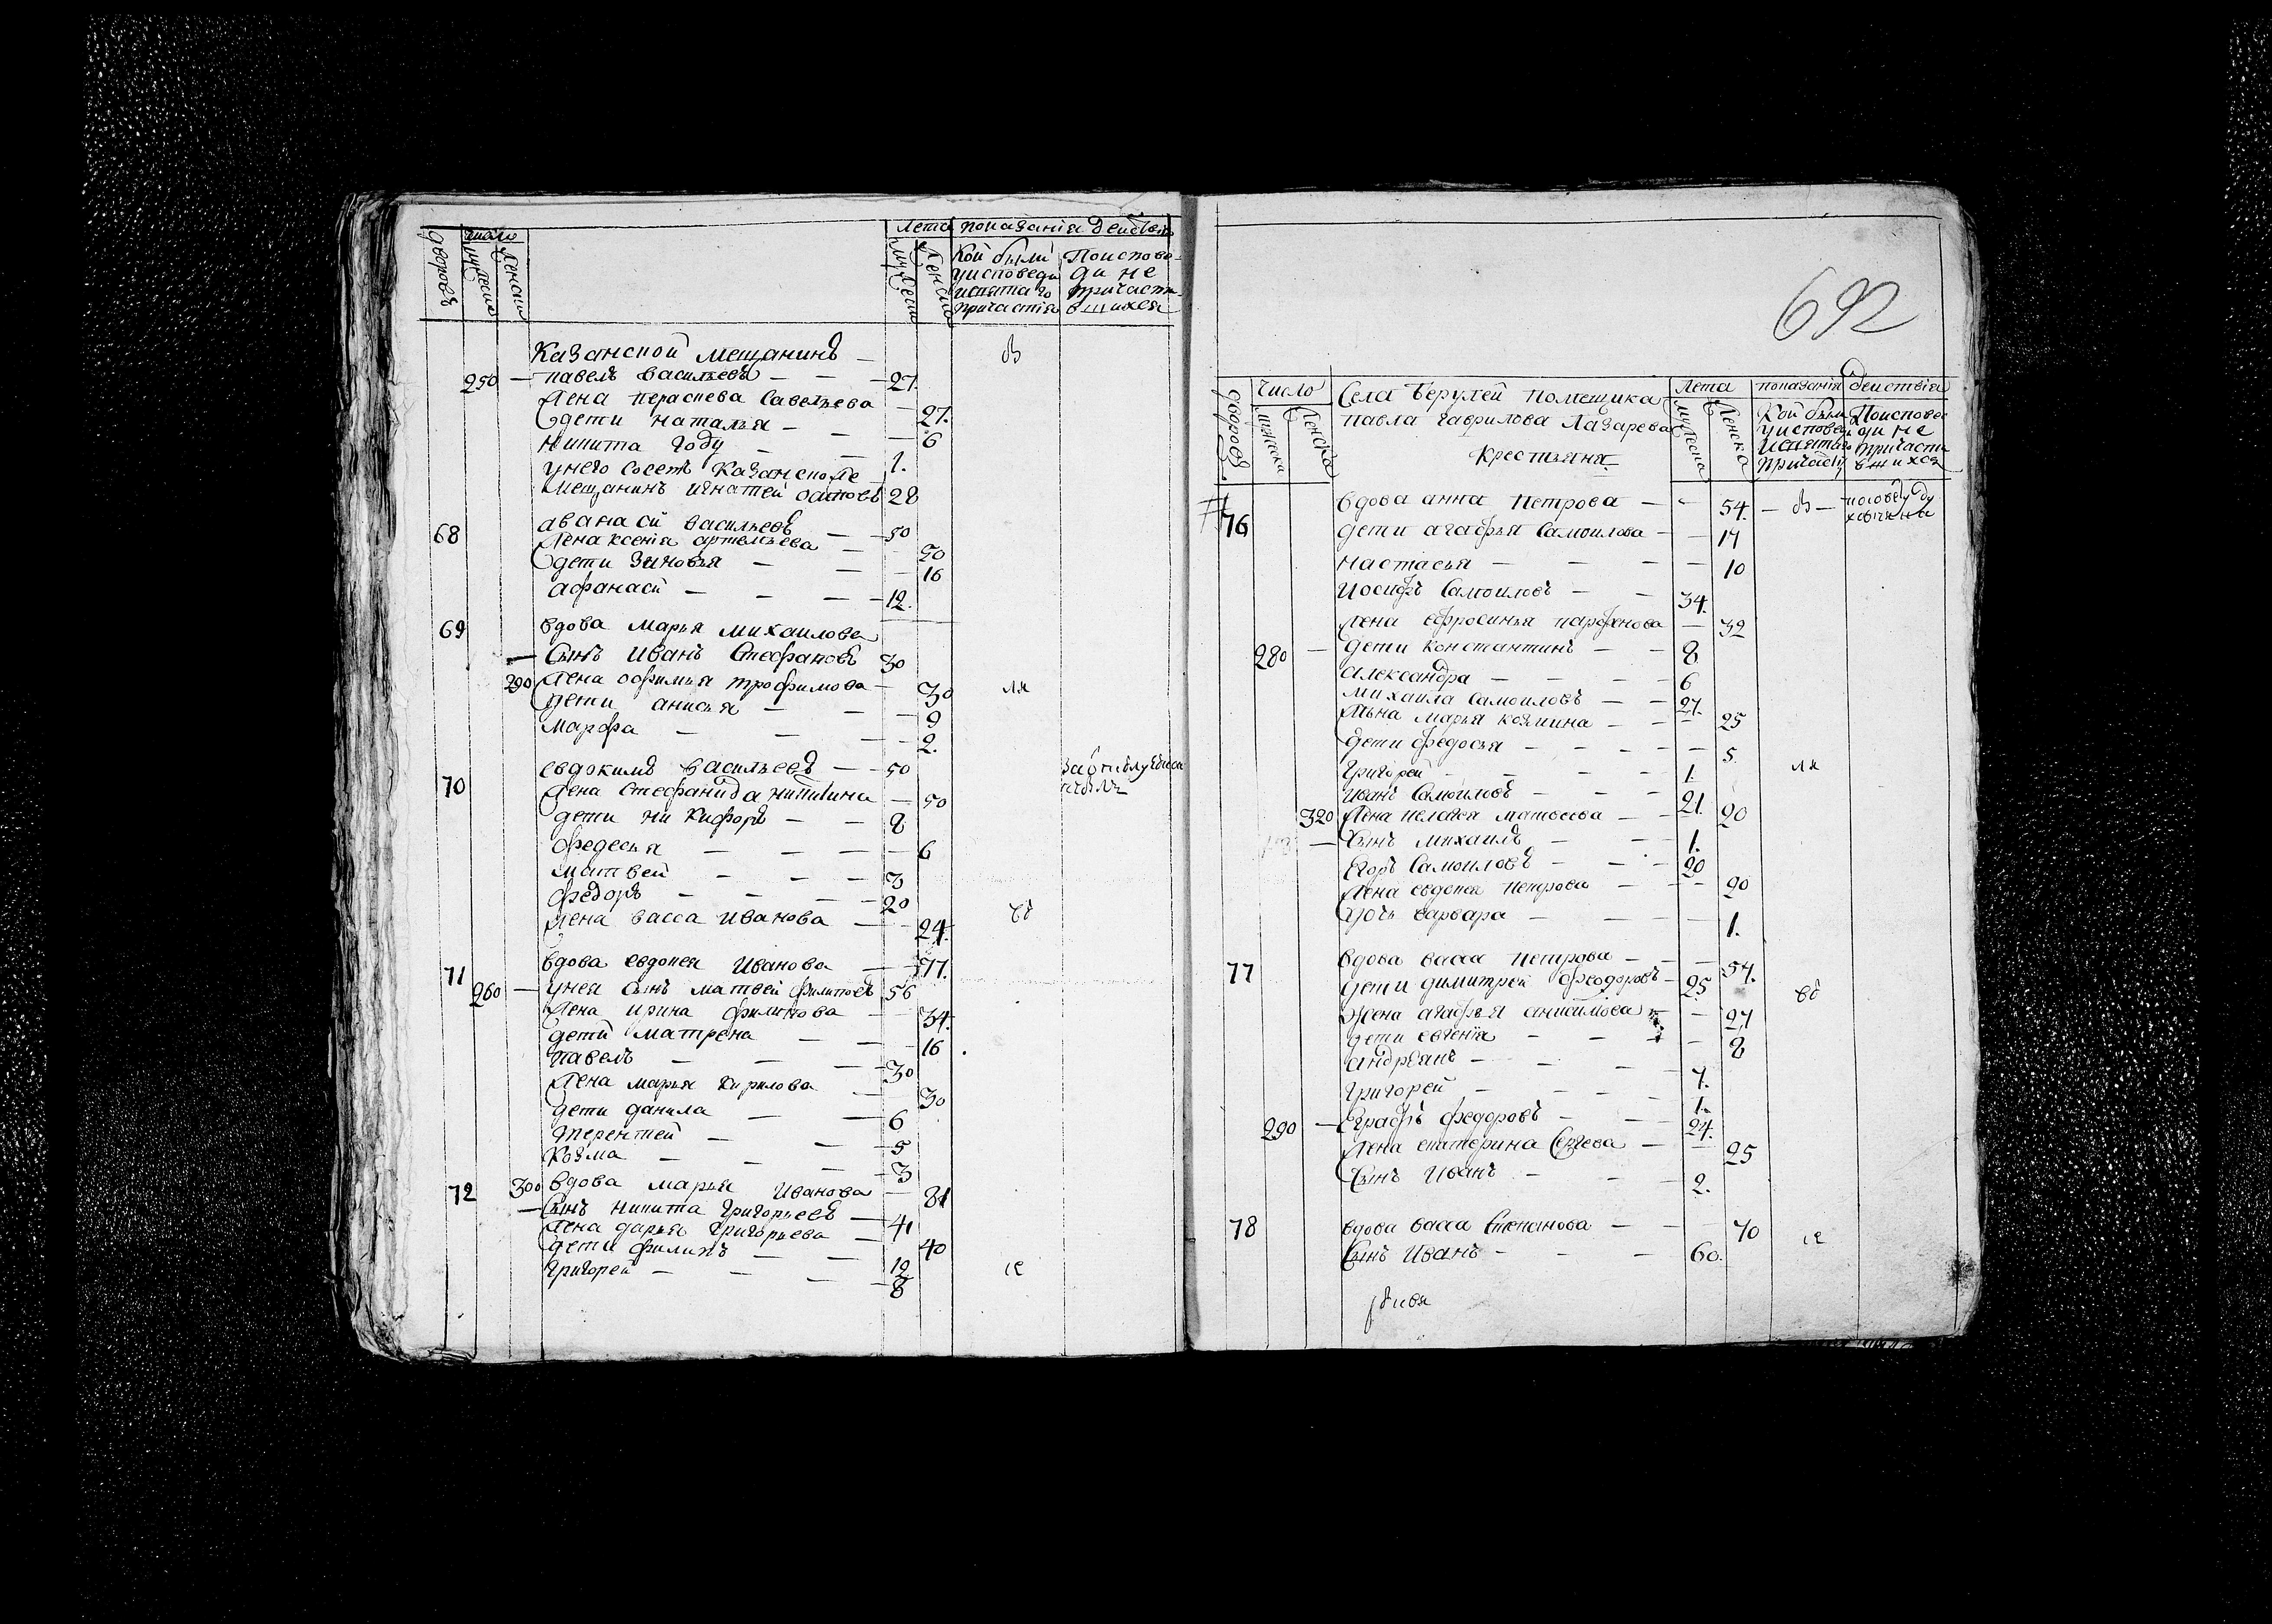 дворовъ
число
мужеска
женска
Лета
мужеска
женска
показанія действія
Кои были уисповеди исвятаго причастія
Поисповеди не причастившихся
Казанской мещанинъ —
250 — павелъ васильевъ — — — 27.
Жена параскева Савельева — 27.
дети наталья — — — 6
никита году — — 1.
унего сосетъ Казанской же —
мещанинъ игнатей 28
68 аѳанасй васильевъ — — 50
Жена ксенія артемьева — — 50
дети Зиновья — — — 16
афанасй — — — — 12.
69 вдова марья михаилова
— Сынъ иванъ Стефановъ 30
290 Жена офимья трофимова — 30
дети анисья — — — 9
марфа — — — 2.
70 евдокимъ васильевъ — — 50
Жена Стефанида никитина — 50
дети никифоръ — — 8
федосья — — — — 6
матвей — — — 3
федоръ — — — — 20
Жена васса иванова — — 24.
71 вдова евдокея иванова — — 77.
260 — унея сынъ матвей филиповъ 56
Жена ирина филипова — — 34.
дети матрена — — — 16
павелъ — — — 30
Жена марья кирилова — — 30
дети данила — — 6
терентей — — 5
козма — — — 3
72 300 вдова марья иванова — 81
— Сынъ никита григорьевъ — 41
Жена дарья григорьева — 40
дети филипъ — — 12
григорей — — — 8
въ
ля
ся
692
дворовъ
число
мужеска
женска
Села Берулей помещика
павла гаврилова лазарева
крестьяня
Лета
мужеска
женска
показанія действія
Кои были уисповеди исвятаго причастія
Поисповеди не причастившихся
76 вдова анна петрова — — 54. — въ —
дети агафья Самоилова — — 14
настасья — — — — 10
иосифъ Самоиловъ — — 34.
Жена ефросинья парфенова — 32
280 — дети константинъ — — 8
александра — — — — 6
михаила Самоиловъ — — 27.
Жена марья козмина — — — 25
дети федосья — — — — — 5
григорей — — — — 1.
иванъ Самоиловъ — — — 21.
320 Жена пелагея матвеева — — 20
— Сынъ михаилъ — — 1.
Егоръ Самоиловъ — — — 20
Жена евдокея петрова — — — 20
дочь варвара — — — — 1.
77 вдова васса петрова — — — 54.
дети димитрей феодоровъ — 25
Жена агафья анисимова — — 27
дети евгенія — — — — 8
андреянъ — — — 7.
григорей — — — 1.
290 — Еграфъ федоровъ — — 24.
Жена екатерина Сергеева — — 25
Сынъ иванъ — — — 2.
78 вдова васса Степанова — — — 70
Сынъ иванъ — — — 60.
ля